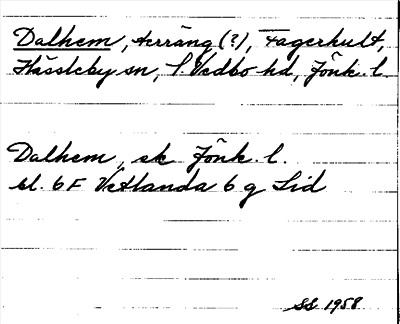 Dalhem, terräng (?), Fagerhult,
Hässleby sn, S. Vedbo hd, Jönk. l.
Dalhem, ek Jönk. l.
bl. 6F Vetlanda 6 g Sid
SS 1958